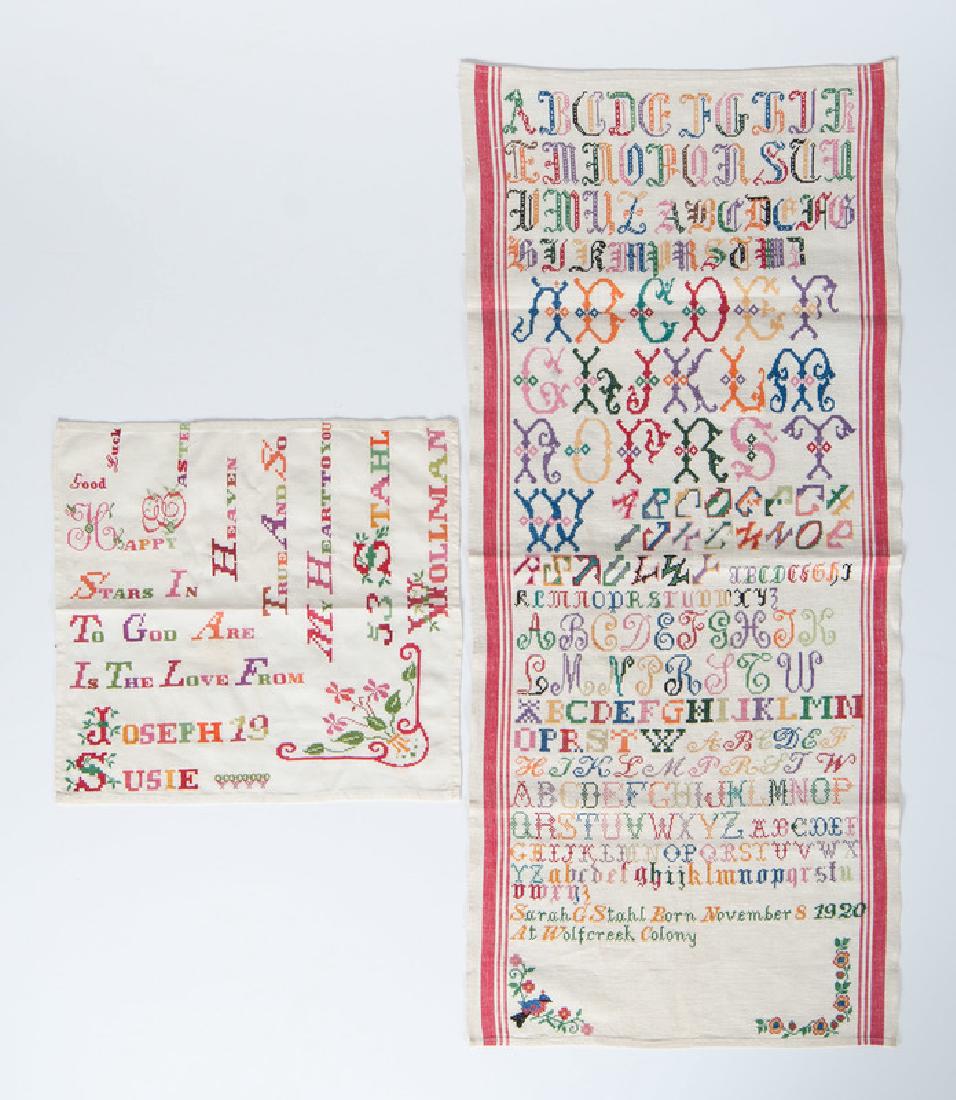 Good Luck
HAPPY EASTER
STARS IN HEAVEN
TO GOD ARE TRUE AND SO
IS THE LOVE FROM MY HEART TO YOU
JOSEPH 19 53 STAHL
SUSIE WOLLMAN
A B C D E F G H I K
L M N O P Q R S T U
V W Z A B C D E F G
H I K M P R S T W Z
A B C D E F
G H J K L M
N O P R S T
W
A B C D E F G H I
K L M N O P R S T U V W X Y Z
A B C D E F G H J K
L M N P R S T W
A B C D E F G H I J K L M N
O P R S T W A B C D E F
H J K L M P R S T W
A B C D E F G H I J K L M N O P
Q R S T U V W X Y Z A B C D E F
G H I J K L M N O P Q R S T U V W X
Y Z a b c d e f g h i j k l m n o p q r s t u
v w x y z
Sarah G Stahl Born November 8 1920
At Wolfcreek Colony